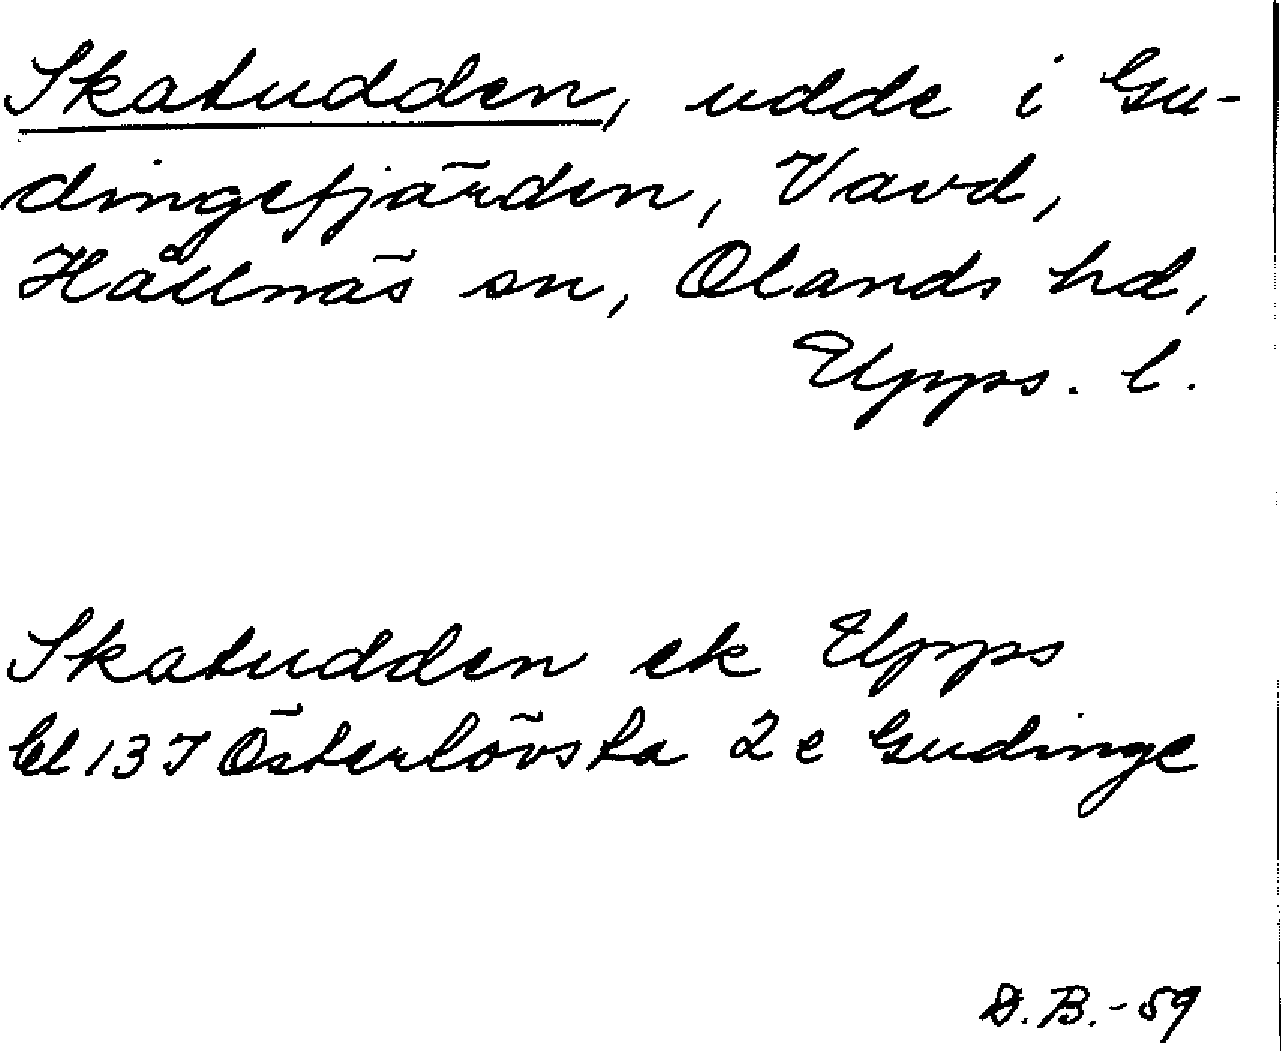 Skatudden, udde i Gu-
dingefjärden, Vavd,
Hållnäs sn, Olands hd,
Upps. l.
Skatudden ek Upps
bl 13 I Österlövsta 2 e Gudinge
D.B.-59